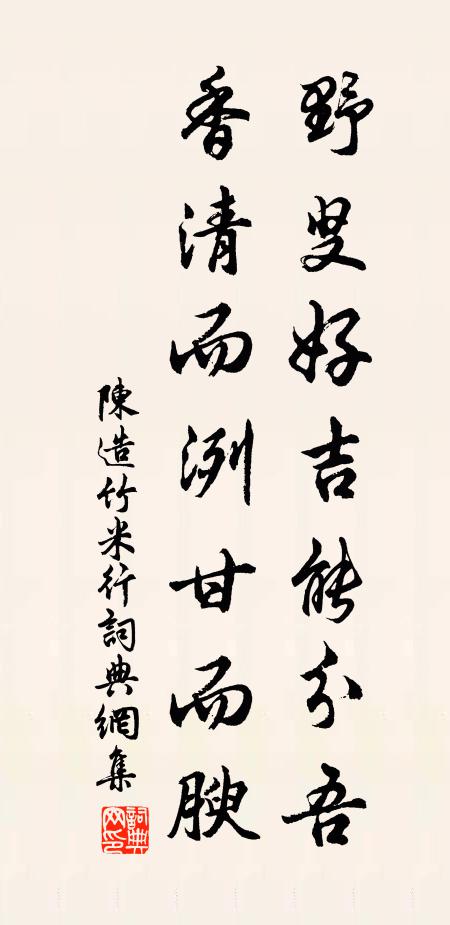 野叟好吉能分吾
香清而洌甘而腴
陳造竹米行詞典網集
詞典網印